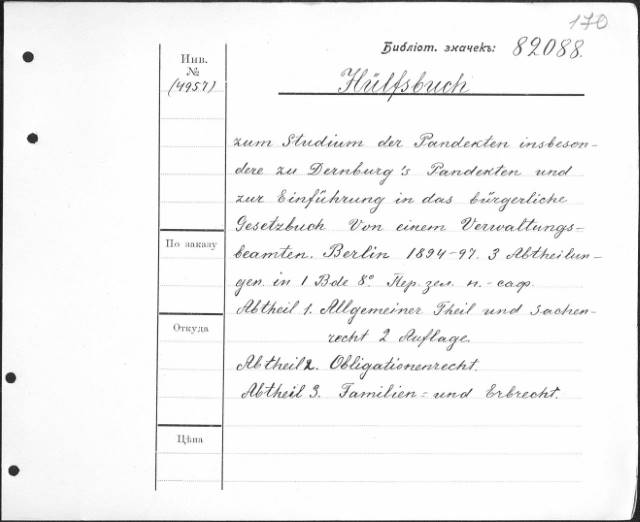 170
Библіот. значекъ: 82088.
Инв.
№
(4957)
Hülfsbuch
zum Studium der Pandekten insbeson-
dere zu Dernburg's Pandekten und
zur Einführung in das bürgerliche
Gesetzbuch Von einem Verwaltungs=
beamten. Berlin 1894-97. 3 Abtheilun-
По заказу
gen. in 1 Bde 8º. Пер. зел. п.-саф.
Abtheil 1. Allgemeiner Theil und Sachen-
Откуда
recht 2 Auflage.
Abtheil 2. Obligationenrecht.
Abtheil 3. Familien= und Erbrecht.
Цѣна